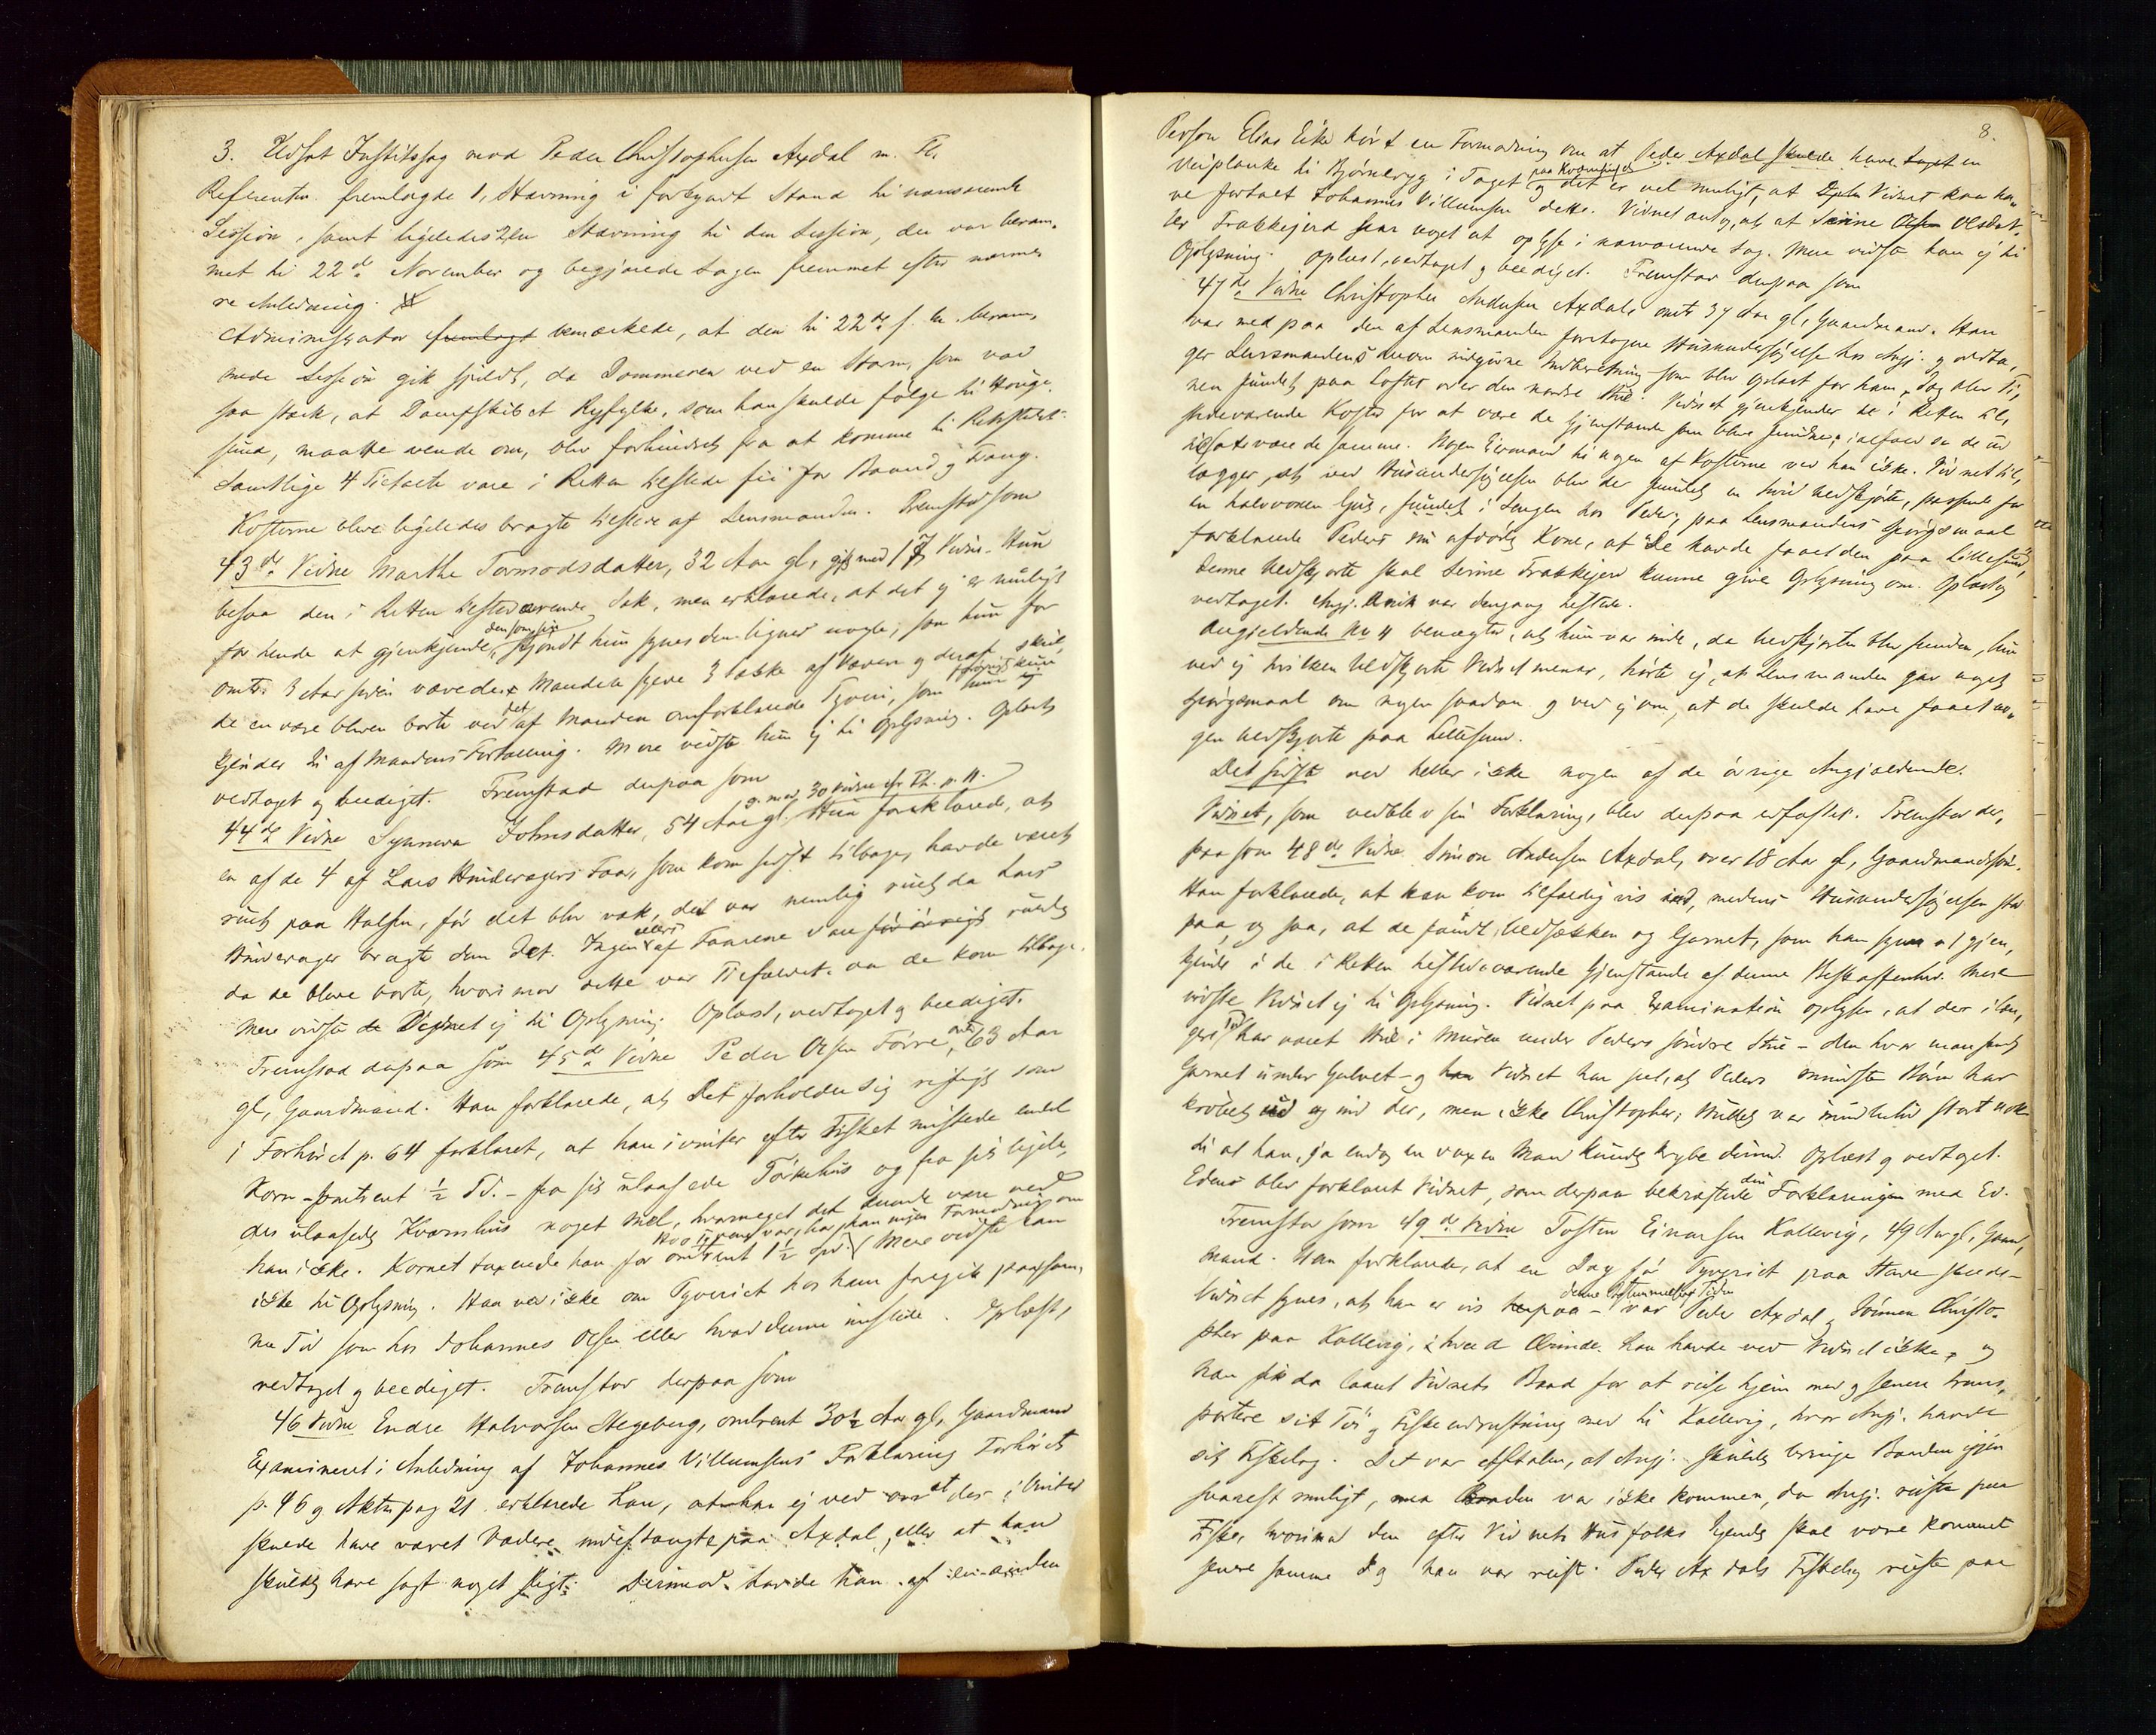 3. Udsat Justitssag mod Peder Christophersen Axdal m. Fl.
Referenten fremlagde 1, Stævning i forkyndt Stand til nærværende
Session, samt ligeledes 2den Stævning til den Session, der var beram-
met til 22de November og begjærede Sagen fremmet efter nærme-
re Anledning.
Administrator fremlagt bemærkede, at den til 22de f. M. beram-
mede Session gik spildt, da Dommeren ved en Storm, som var
saa stærk, at Dampskibet Ryfylke, som han skulde følge til Hauge-
sund, maatte vende om, blev forhindret fra at komme til Retsstedet.
Samtlige 4 Tiltalte vare i Retten tilstede fri for Baand og Tvang.
Kosterne bleve ligeledes bragte tilstede af Lensmanden. Fremstod som
43de Vidne Marthe Tormodsdatter, 32 Aar gl, gift med 17 Vidne. Hun
besaa den i Retten tilstedeværende Sæk, men erklærede, at det ej er muligt
for hende at gjenkjende den som sin, skjøndt hun synes den ligner nogle, som hun for
omtr. 3 Aar siden vævede. Manden syede 3 Sække af Væven og deraf skul-
de en være bleven borte ved det af Manden omforklarede Tyveri, som hun ej forøvrigt kun
kjender til af Mandens Fortælling. Mere vidste hun ej til Oplysning. Oplæst,
vedtaget og beediget. Fremstod derpaa som
44de Vidne Synneva Johnsdatter, 54 Aar gl. g. med 30 Vidne cfr Fh. p. 11. Hun forklarede, at
en af de 4 af Lars Hinderagers Faar, som kom sidst tilbage, havde været
rundt paa Halsen, før det blev væk, det var nemlig rundt da Lars
Hinderager bragte dem did. Ingen ellers af Faarene vare forøvrigt rundt
da de bleve borte, hvorimod dette var Tilfældet da de kom tilbage.
Mere vidste de Vidnet ej til Oplysning. Oplæst, vedtaget og beediget.
Fremstod derpaa som 45de Vidne Peder Olsen Førre, omtr. 63 Aar
gl, Gaardmand. Han forklarede, at Det forholder sig rigtigt som
i Forhøret p. 64 forklaret, at han ivinter efter Fisket mistede endel
Korn – omtrent ½ Td. – fra sit ulaasede Tørkehus og fra sit ligele-
des ulaasede Kværnhus noget Mel, hvormeget det kunde være ved
han ikke. Kornet taxerede han for omtrent 1½ Spd. Hvo Tyven var, har han ingen Formodning om Mere vidste han
ikke til Oplysning. Han ved ikke om Tyveriet hos ham foregik paa sam-
me Tid som hos Johannes Olsen eller hvad denne mistede. Oplæst,
vedtaget og beediget. Fremstod derpaa som
46 Vidne Endre Halvorsen Stegeberg, omtrent 30½ Aar gl, Gaardmand
Examineret i Anledning af Johannes Villumsens Forklaring Forhørets
p. 46 og Aktens pag 21 erklærede han, at han ej ved om at der i Vinter
skulde have været Vædere indestængte paa Axdal, eller at han
skulde have sagt noget sligt. Derimod havde han af en anden
8.
Person Elias Eike hørt en Formodning om at Peder Axdal skulde have taget en
Veiplanke til Bjørneryg i Taget paa Kværnhuset og det er vel muligt, at Vidnet kan ha-
ve fortalt Johannes Villumsen dette. Vidnet antog, at Serine Olsdat-
ter Trækkejord skar noget at oplyse i nærværende Sag. Mere vidste han ej til
Oplysning. Oplæst, vedtaget og beediget. Fremstod derpaa som
47de Vidne Christopher Andersen Axdal, omtr 37 Aar gl, Gaardmand. Han
var med paa den af Lensmanden foretagne Husundersøgelse hos Angj. og vedta-
ger Lensmandens derom indgivne Indberetning som blev oplæst for ham, dog blev Ti-
nen fundet paa Loftet over den nordre Stue. Vidnet gjenkjender de i Retten til-
stedeværende Koster for at være de Gjenstande som bleve fundne, ialfald se de ud
til at være de samme. Nogen Eiermand til nogen af Kosterne ved han ikke. Vidnet til-
lægger, at ved Husundersøgelsen blev der fundet en hvid Uldskjorte, passende for
en halvvoxen Gut, fundet i Sengen hos Peder; paa Lensmandens Spørgsmaal
forklarede Peders nu afdøde Kone, at De havde faaet den paa Lillesund,
Denne Uldskjorte skal Serine Trækkejord kunne give Oplysning om. Oplæst og
vedtaget. Angj. Anna var dengang tilstede.
Angjældende No 4 benægter, at hun var inde, da Uldskjorten blev funden, hun
ved ej hvilken Uldskjorte Vidnet mener, hørte ej, at Lensmanden gav noget
Spørgsmaal om nogen saadan og ved ej om, at de skulde have faaet no-
gen Uldskjorte paa Lillesund.
Det sidste ved heller ikke nogen af de øvrige Angjældende.
Vidnet, som vedblev sin Forklaring, blev derpaa edfæstet. Fremstod der-
paa som 48de Vidne Simon Andersen Axdal, over 18 Aar gl, Gaardmandssøn.
Han forklarede, at han kom tilfældigvis ind, medens Husundersøgelsen stod
paa og saa, at de fandt Uldsækken og Garnet, som han synes at gjen-
kjende i de i Retten tilstedeværende Gjenstande af denne Beskaffenhed. Mere
vidste Vidnet ej til Oplysning. Vidnet paa Examination oplyser, at der i læn-
gere Tid har været Hul i Muren under Peders søndre Stue – den hvor man fandt
Garnet under Gulvet – og Vidnet har seet, at Peders mindste Børn har
krøbet ud og ind der, men ikke Christopher; Hullet var imidlertid stort nok
til at han, ja endog en voxen Mand kunde krybe derind. Oplæst og vedtaget.
Edens blev forklaret Vidnet, som derpaa bekræftede sin Forklaring med Ed.
Fremstod som 49de Vidne Tosten Einarsen Kallevig, 49 Aar gl, Gaard-
mand. Han forklarede, at en Dag før Tyveriet paa Stave skede –
Vidnet synes, at han er vis paa denne Bestemmelse af Tiden – var Peder Axdal og Sønnen Christo-
pher paa Kallevig, i hvad Ærinde han havde ved Vidnet ikke, og
han fik da laant Vidnets Baad for at reise hjem med og senere trans-
portere sit Tøi og Fiskeudrustning med til Kallevig, hvor Angj. havde
sit Fiskelag. Det var Aftalen, at Angj. skulde bringe Baaden igjen
snarest muligt, men Baaden var ikke kommen, da Angj. reiste paa
Fiske, hvorimod den efter Vidnets Husfolks Sigende skal være kommet
senere samme Dag han var reist. Peder Axdals Fiskelag reiste paa